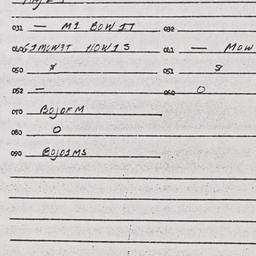 031 — M1 BOW IT 032
040 61MOW3T HOW1S 041 — MOW
050 * 051 8
052 — 060 O
070 BOJOFM
080 O
090 BOJOIMS